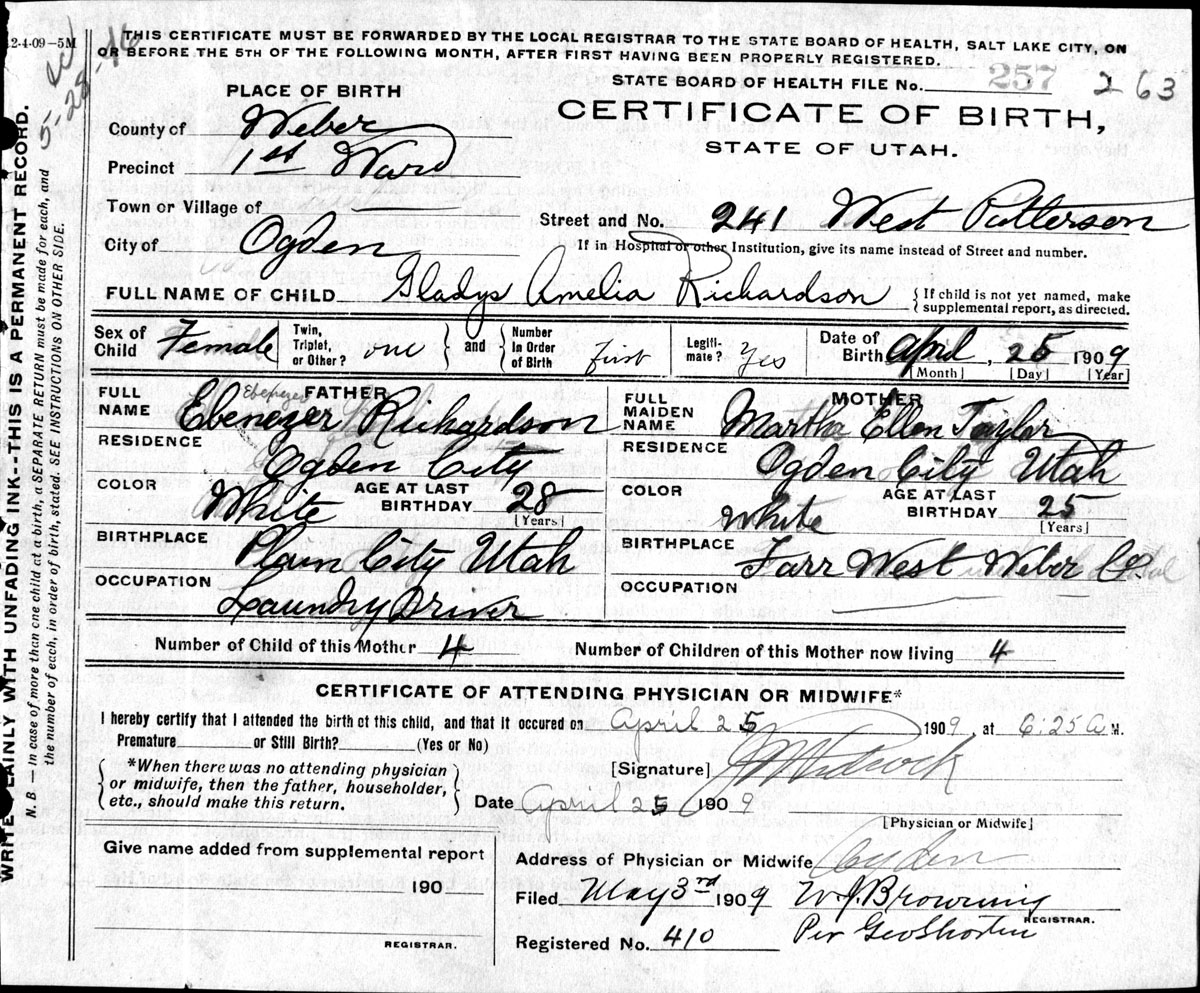 12-4-09-5M
THIS CERTIFICATE MUST BE FORWARDED BY THE LOCAL REGISTRAR TO THE STATE BOARD OF HEALTH, SALT LAKE CITY, ON
OR BEFORE THE 5TH OF THE FOLLOWING MONTH, AFTER FIRST HAVING BEEN PROPERLY REGISTERED.
STATE BOARD OF HEALTH FILE No. 257 263
PLACE OF BIRTH
CERTIFICATE OF BIRTH,
STATE OF UTAH.
County of Weber
Precinct 1st Ward
Town or Village of
Street and No. 241 West Patterson
City of Ogden
If in Hospital or other Institution, give its name instead of Street and number.
FULL NAME OF CHILD Gladys Amelia Richardson { If child is not yet named, make supplemental report, as directed.
Sex of Child Female Twin, Triplet, or Other? one } and { Number In Order of Birth first Legiti- mate? Yes Date of Birth April, 25 1909
[Month] [Day] [Year]
FATHER
FULL NAME Ebenezer Richardson
Ebenezer
RESIDENCE Ogden City
COLOR White AGE AT LAST BIRTHDAY 28
[Years]
BIRTHPLACE Plain City Utah
OCCUPATION Laundry Driver
MOTHER
FULL MAIDEN NAME Martha Ellen Taylor
RESIDENCE Ogden City Utah
COLOR White AGE AT LAST BIRTHDAY 25
[Years]
BIRTHPLACE Farr West Weber Co.
OCCUPATION
Number of Child of this Mother 4 Number of Children of this Mother now living 4
CERTIFICATE OF ATTENDING PHYSICIAN OR MIDWIFE*
I hereby certify that I attended the birth of this child, and that it occured on April 25 1909, at 6:25 A M.
Premature or Still Birth? (Yes or No)
[Signature]
{ *When there was no attending physician
or midwife, then the father, householder,
etc., should make this return. }
Date April 25 1909
[Physician or Midwife]
Give name added from supplemental report
190
REGISTRAR.
Address of Physician or Midwife Ogden
Filed May 3rd 1909 W. J. Browning
REGISTRAR.
Registered No. 410 Per Geo Shorten
WRITE PLAINLY WITH UNFADING INK--THIS IS A PERMANENT RECORD.
N. B.—In case of more than one child at a birth, a SEPARATE RETURN must be made for each, and
the number of each, in order of birth, stated. SEE INSTRUCTIONS ON OTHER SIDE.